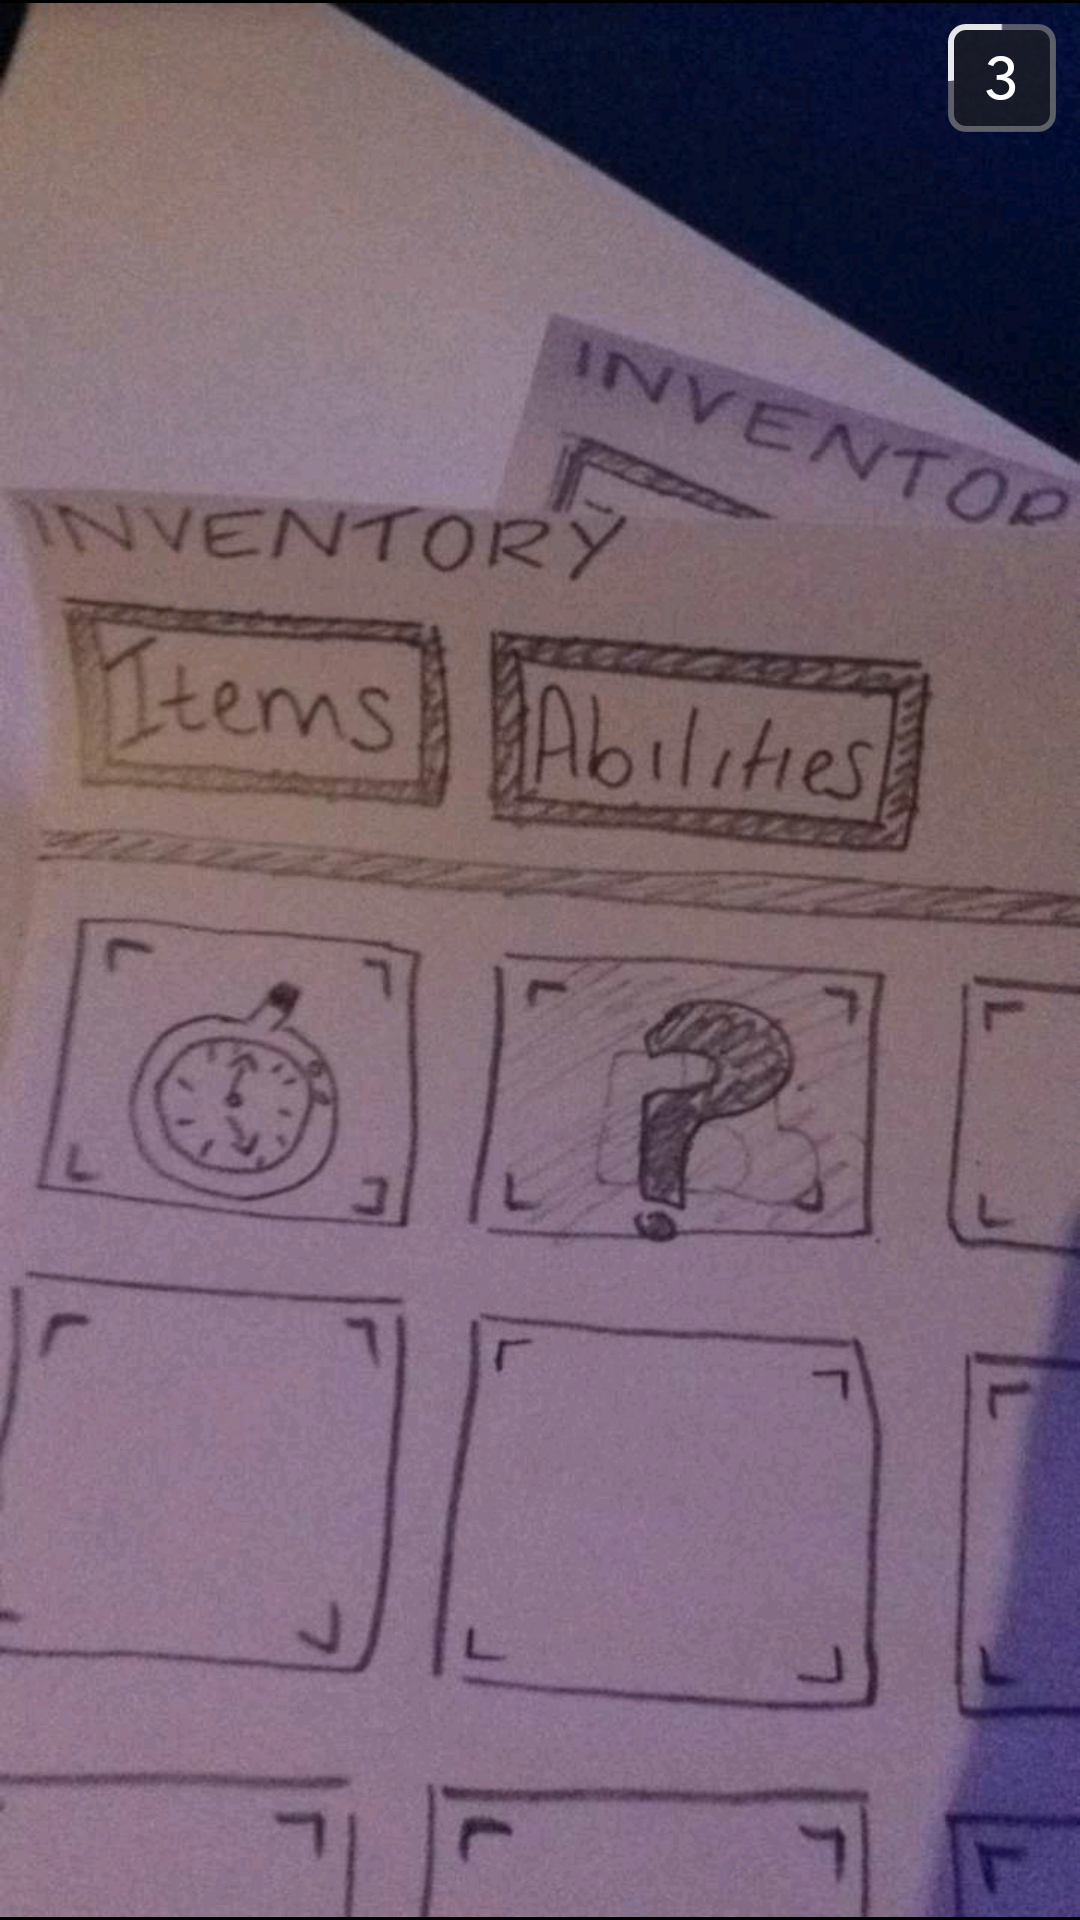 3
INVENTOR
INVENTORY
Items
Abilities
?